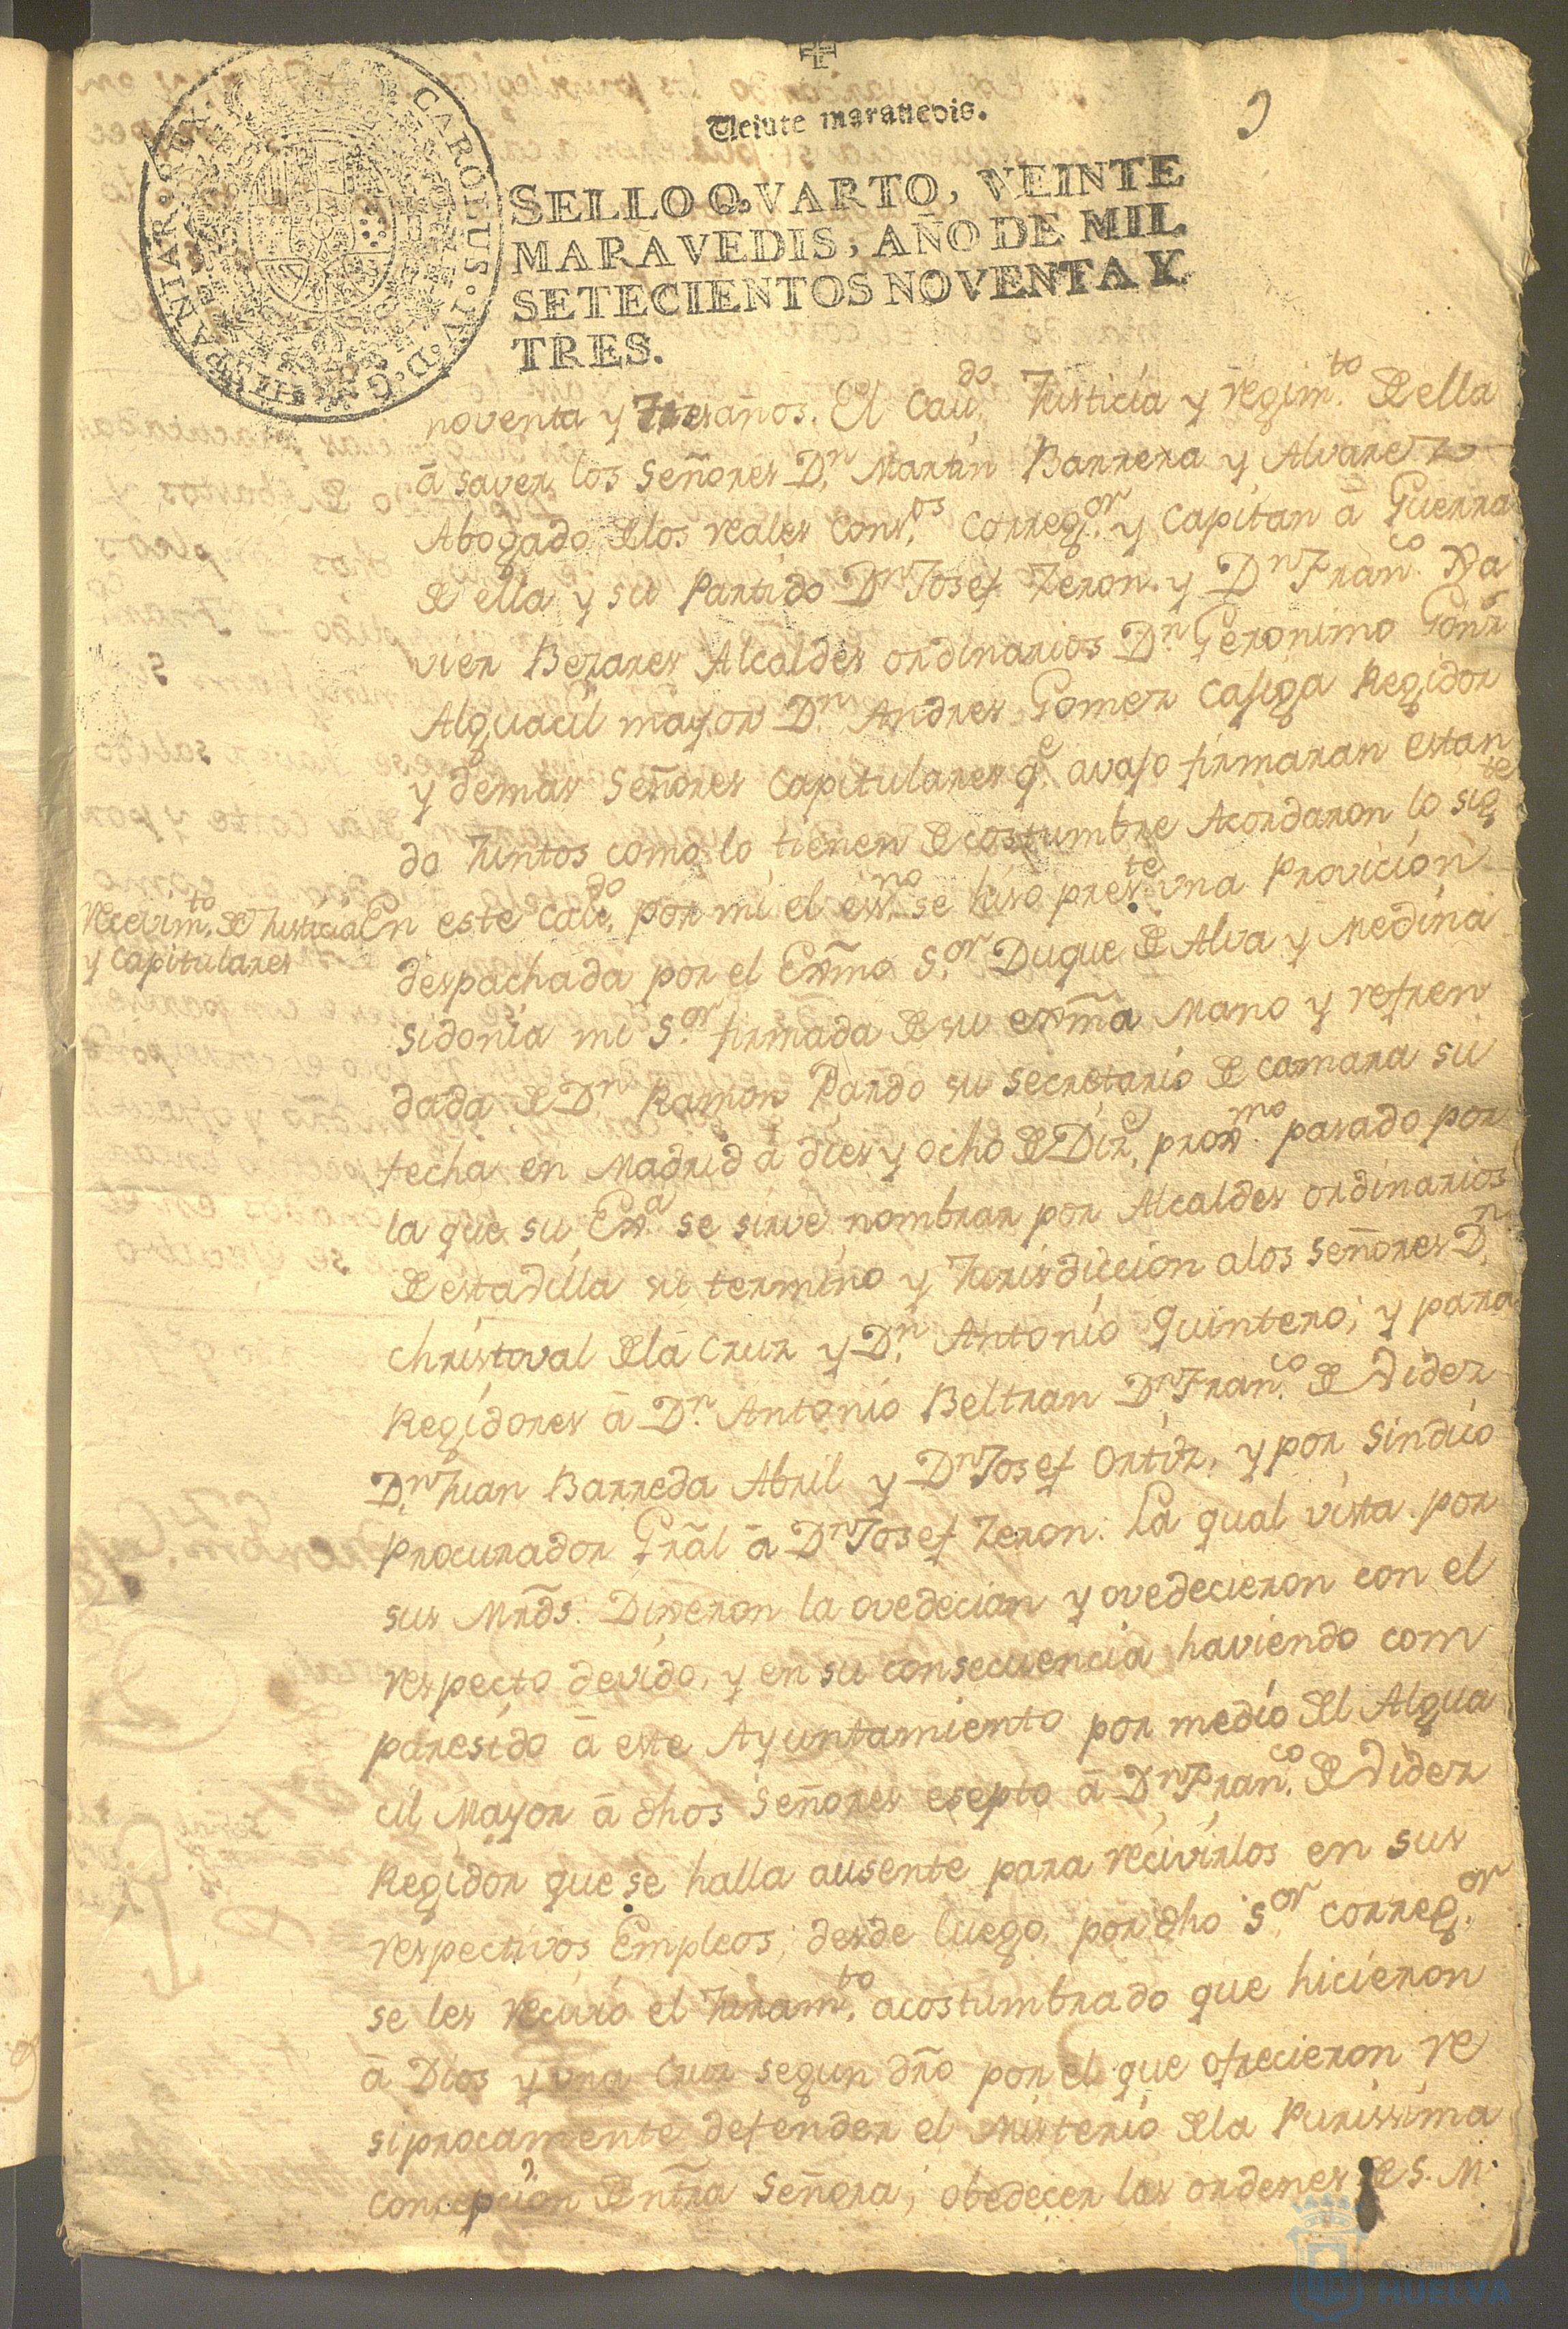 Veinte maravedis.
SELLO QVARTO, VEINTE
MARAVEDIS, AÑO DE MIL
SETECIENTOS NOVENTA Y
TRES.
CAROLUS • IV • D • G • HISPANIAR • REX
noventa y tres años. El Cavdo. Justicia y regimto. de ella
â saver los Señores Dn. Martin Barrera y Alvarez
Abogado delos reales Consos. Corregor. y Capitan â Guerra
de ella y su Partido Dn Josef Zeron. y Dn Franco. Xa
vier Bezares Alcaldes ordinarios Dn. Geronimo Gonz
Alguacil mayor Dn. Andres Gomez Casiga Regidor
y demas Señores Capitulares qe. avajo firmaran estan
do Juntos como lo tienen de costumbre Acordaron lo sigte
Recevimto. de Justicia
y Capitulares
En este Cavdo. por mi el essno. se hiso preste. una Provicion
despachada por el Exmo. Sor. Duque de Alva y Medina
Sidonia mi Sor. firmada de su exma Mano y refren
dada de Dn Ramon Pardo su Secretario de Camara su
fecha en Madrid â dies y ocho de Dize. proxmo. pasado por
la que su Exa. se sirve nombrar por Alcaldes ordinarios
de esta dilla su termino y Jurisdiccion alos Señores Dn.
Christoval dela Cruz y Dn. Antonio Quintero; y para
Regidores â Dn. Antonio Beltran Dn Franco. de Videz
Dn. Juan Barreda Abril y Dn Josef Ortiz, y por Sindico
Procurador Gral â Dn Josef Zeron. La qual vista por
sus Mrds. Dixeron la ovedecian y ovedecieron con el
respecto devido, y en su consecuencia haviendo com
paresido â este Ayuntamiento por medio del Algua
cil Mayor â dhos Señores esepto â Dn Franco. de Videz
Regidor que se halla ausente para recivirlos en sus
respectivos Empleos; desde luego, por dho Sor. Corregor.
se les recivio el Juramto. acostumbrado que hicieron
â Dios y una Cruz segun dro por el que ofrecieron re
siprocamente defender el Misterio dela Purissima
Concepcion de ntra Señora; obedecer las ordenes de S. M.
HUELVA